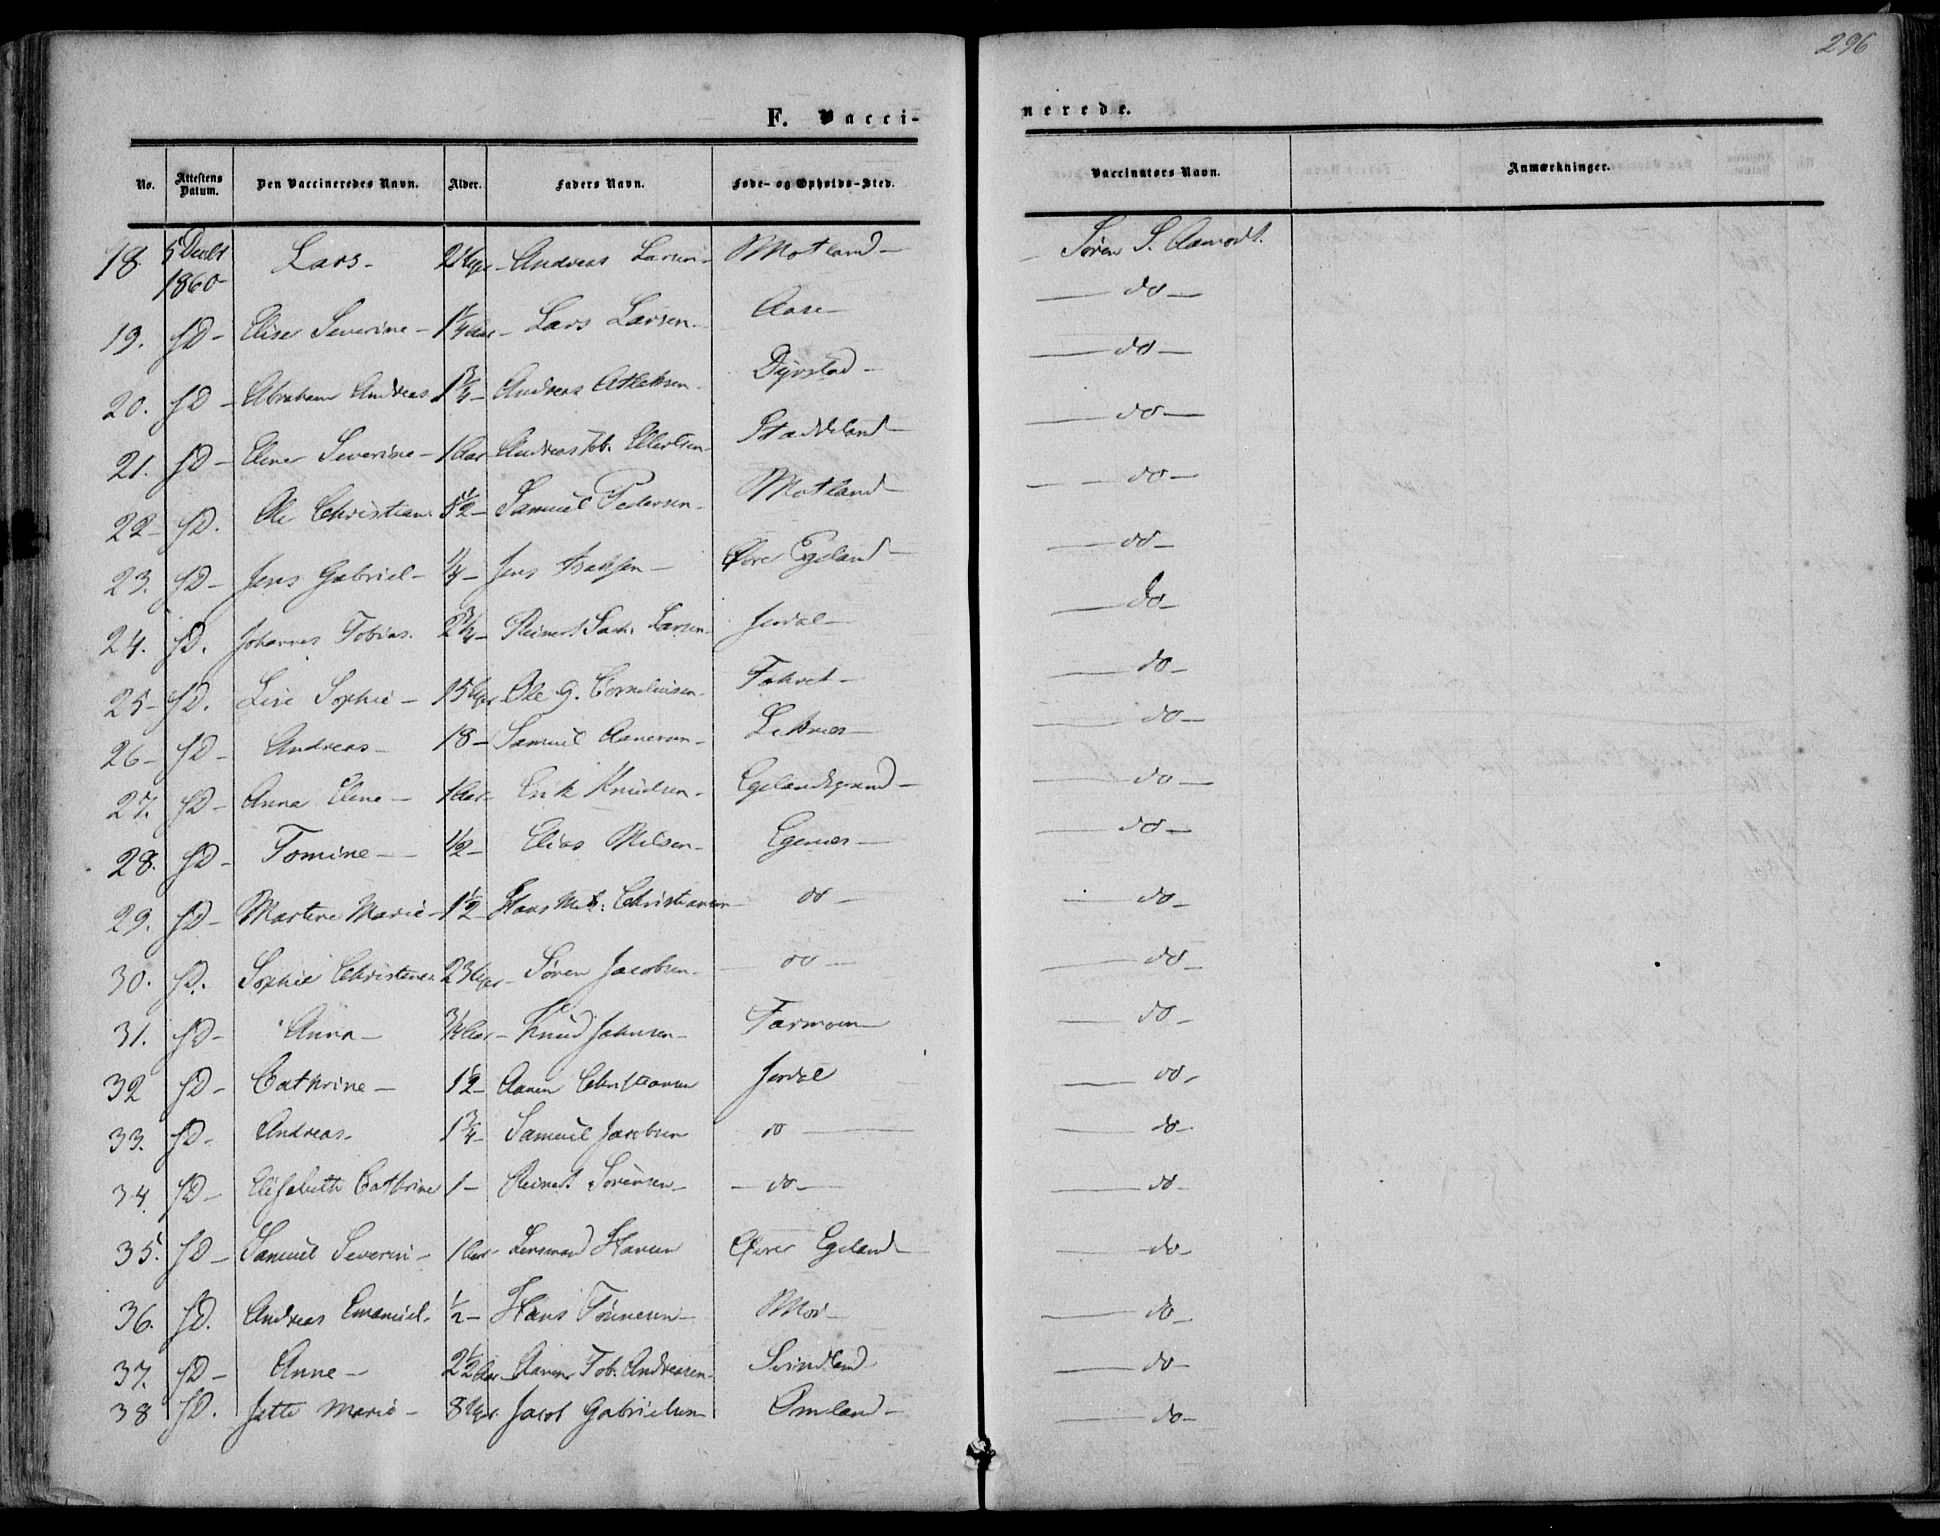 296
F. Vacci-nerede.
No. Attestens Datum. Den Vaccineredes Navn. Alder. Faders Navn. Føde- og Opholds-Sted. Vaccinators Navn. Anmærkninger.
18. 5 1860 Lars - Andreas Larsen - Motland - Søren S. Aamodt.
19. sD - Elise Severine - 1 1/4 Aar - Lars Larsen - Aase - do -
20. sD - Abraham Andreas 1 3/4 - Andreas Atlaksen - Dyrstad - do -
21. sD - Elene Severine - 1 Aar - Andreas Tob. Ellertsen - Staddeland - do -
22 - sD. Ole Christian - Samuel Pedersen - Motland - do -
23. sD - Jens Gabriel - 1/4 - Jens Isaksen - Øvre Egeland - do -
24. sD. Johannes Tobias. 2 3/4 - Reinert Larsen - Jerdal - do -
25 - sD. Lise Sophie - 15 Uger Ole G. Corneliusen - do -
26 - sD - Andreas - 18 - Samuel Aanesen - Leknes - do -
27. sD - Anna Elene - 1 Aar - Erik Knudsen - Egelandsgrand - do -
28. sD - Tomine - 1/2 - Elias Nilsen - Egenes - do -
29. sD - Martine Marie - 1 1/2 Hans Christiansen do - do -
30. sD. Sophie Christene. 23 Uger - Søren Jacobsen - do - do -
31. sD - Anna - 3/4 Aar - Knud Johnsen - Tarmoen - do -
32 sD - Cathrine - 1 1/2 - Aanen Christiansen Jerdal do -
33. sD - Andreas - 1 3/4 - Samuel Jacobsen do - do -
34. sD - Elisabeth Cathrine 1 - Reinert Sørensen - do - do -
35. sD - Samuel Severin - 1 Aar - Lensmand Hansen Øvre Egeland - do -
36. sD. Andreas Emanuel. 1/2 - Hans Tønnesen - Moi - do -
37. sD - Anne - 2 1/2 Aar - Aanen Tob. Andreasen - Svindland do -
38 sD. Jette Marie - 8 Uger. Jacob Gabrielsen Omland - do -